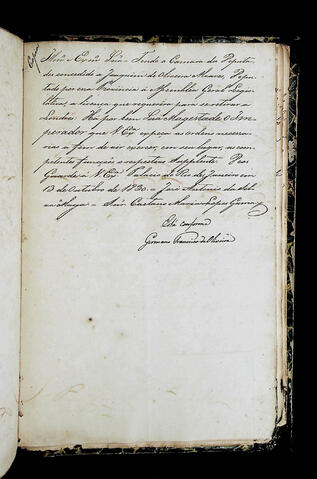 Copia
Illmo e Exmo Snr = Tendo a Camara dos Deputa
dos concedido a Joaquim de Oliveira Alvares, Depu
tado por essa Provincia á Assembléa Geral Legis
lativa, a licença que requerera para se retirar a
Londres: Ha por bem Sua Magestade o Im
perador que V. Exa expeça as ordens necessa
rias a fim de vir exercer, em seu lugar, as com
petentes funcções o respectivo Supplente. Deos
Guarde a V. Exa Palacio do Rio de Janeiro em
13 de Outubro de 1830 = José Antonio da Sil
va Maya = Snr. Caetano Maria Lopes Gama
Está conforme
Germano Francisco de Oliveira